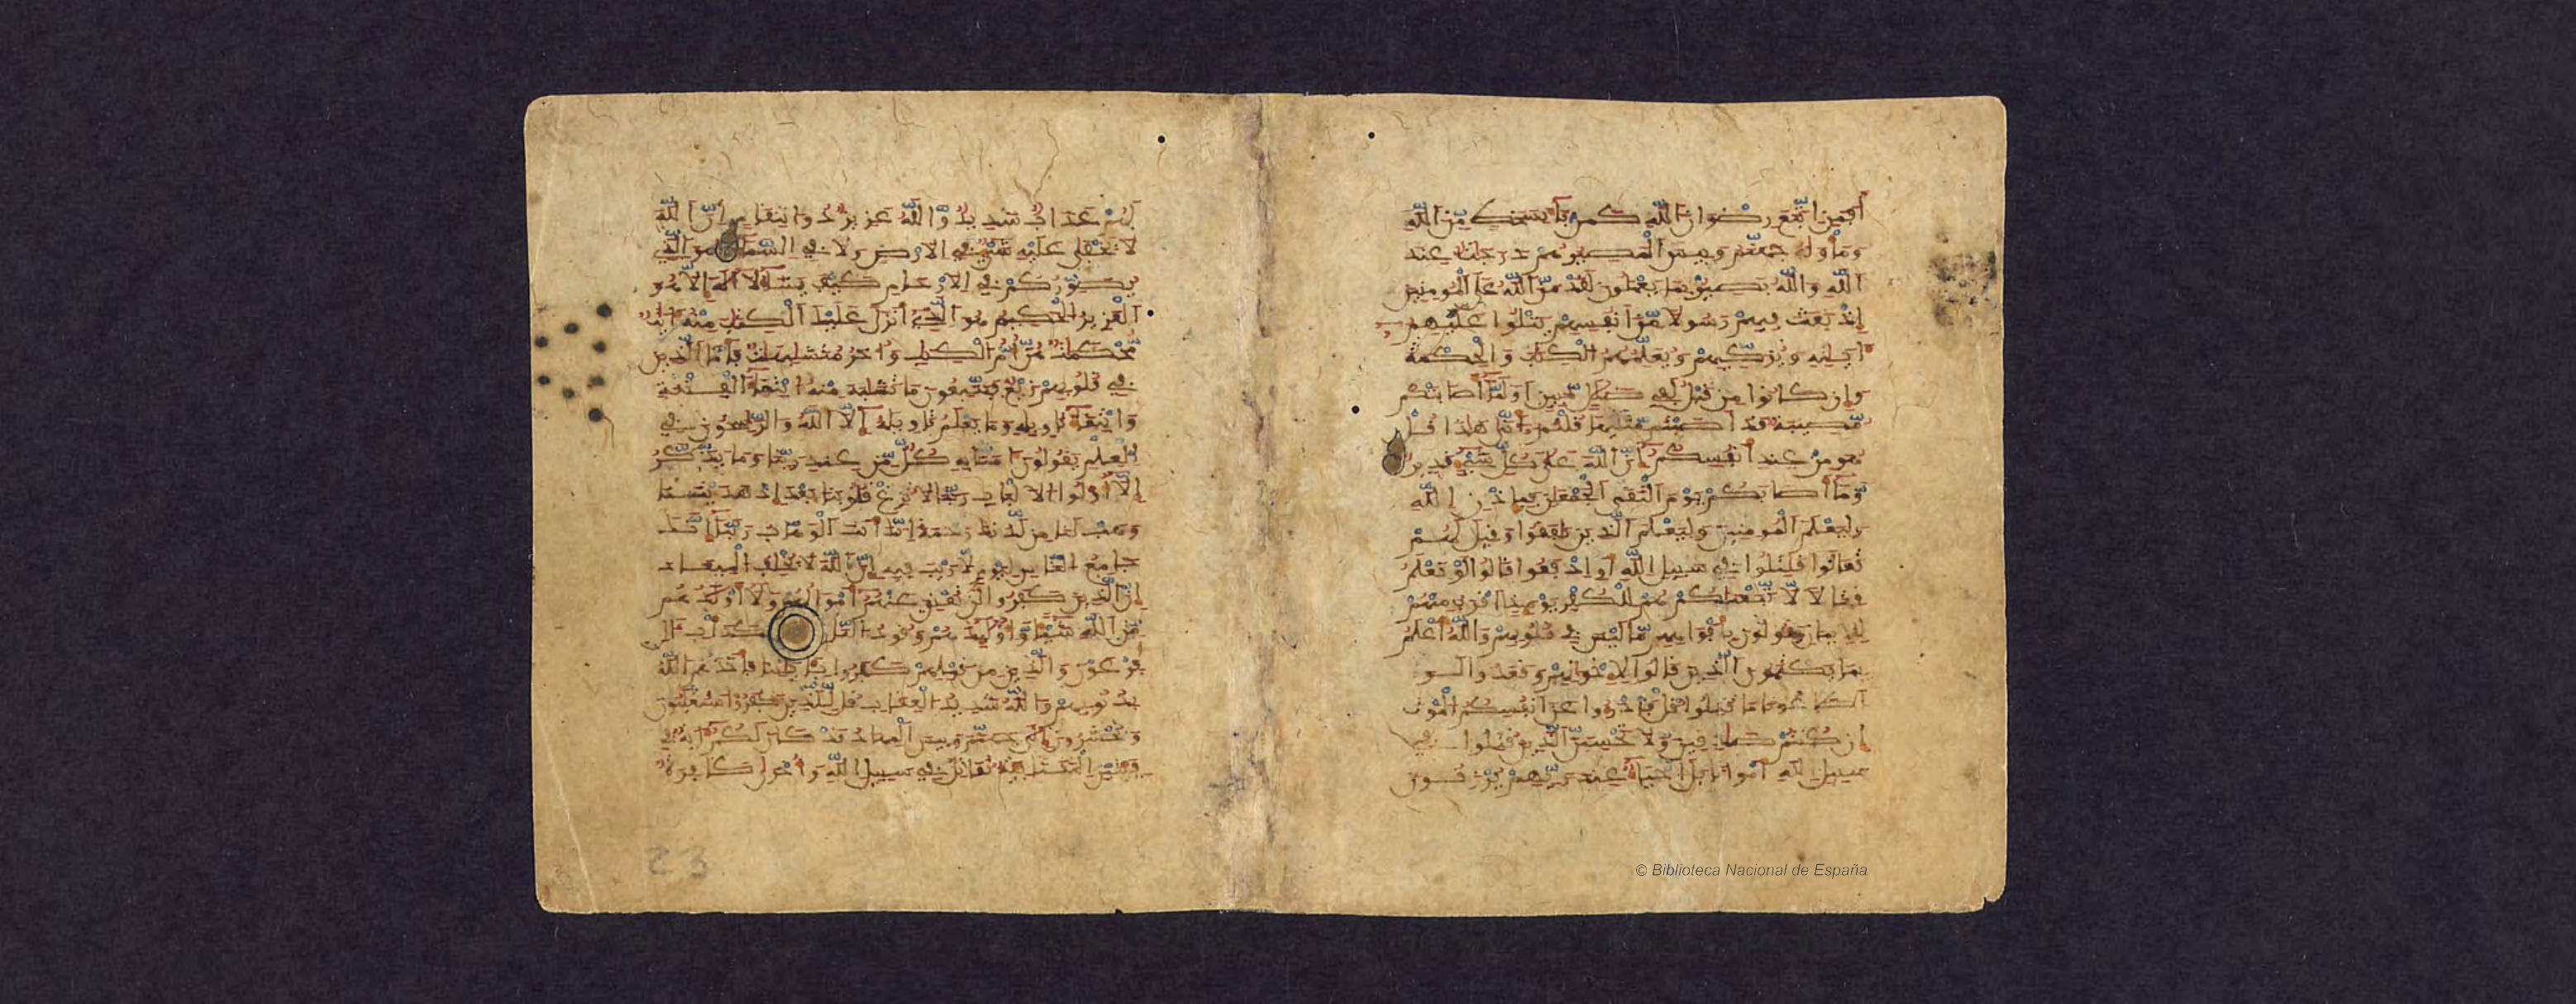 أفمن اتبع رضوان الله كمن باء بسخط من الله
ومأويه جهنم وبيس المصير هم درجات عند
الله والله بصير بما يعملون لقد من الله على المومنين
إذ بعث فيهم رسولا من أنفسهم يتلوا عليهم
ءايته ويزكيهم ويعلمهم الكتب والحكمة
وإن كانوا من قبل لفي ضلل مبين أولما أصابتكم
مصيبة قد أصبتم مثليها قلتم أنى هذا قل
هو من عند أنفسكم إن الله على كل شيء قدير
وما أصابكم يوم التقى الجمعن فبإذن الله
وليعلم المومنين وليعلم الذين نافقوا وقيل لهم
تعالوا قتلوا في سبيل الله أو ادفعوا قالوا لو نعلم
قتالا لاتبعنكم هم للكفر يومئذ أقرب منهم
للإيمن يقولون بأفواههم ما ليس في قلوبهم والله أعلم
بما يكتمون الذين قالوا لإخوانهم وقعدوا لو
أطاعونا ما قتلوا قل فادرءوا عن أنفسكم الموت
إن كنتم صدقين ولا تحسبن الذين قتلوا في
سبيل الله أموتا بل أحياء عند ربهم يرزقون
لهم عذاب شديد والله عزيز ذو انتقام إن الله
لا يخفى عليه شيء في الارض ولا في السماء هو الذي
يصوركم في الارحام كيف يشاء لا إله إلا هو
العزيز الحكيم هو الذي أنزل عليك الكتب منه ءايت
محكمت هن أم الكتب وأخر متشبهت فأما الذين
في قلوبهم زيغ فيتبعون ما تشبه منه ابتغاء الفتنة
وابتغاء تاويله وما يعلم تاويله إلا الله والرسخون في
العلم يقولون ءامنا به كل من عند ربنا وما يذكر
إلا أولوا الالبب ربنا لا تزغ قلوبنا بعد إذ هديتنا
وهب لنا من لدنك رحمة إنك أنت الوهاب ربنا إنك
جامع الناس ليوم لا ريب فيه إن الله لا يخلف الميعاد
إن الذين كفروا لن تغني عنهم أموالهم ولا أولدهم
من الله شيئا وأوليك هم وقود النار كدأب ءال
فرعون والذين من قبلهم كذبوا بئايتنا فأخذهم الله
بذنوبهم والله شديد العقاب قل للذين كفروا ستغلبون
وتحشرون إلى جهنم وبيس المهاد قد كان لكم ءاية في
فئتين التقتا فئة تقاتل في سبيل الله وأخرى كافرة
23
© Biblioteca Nacional de España